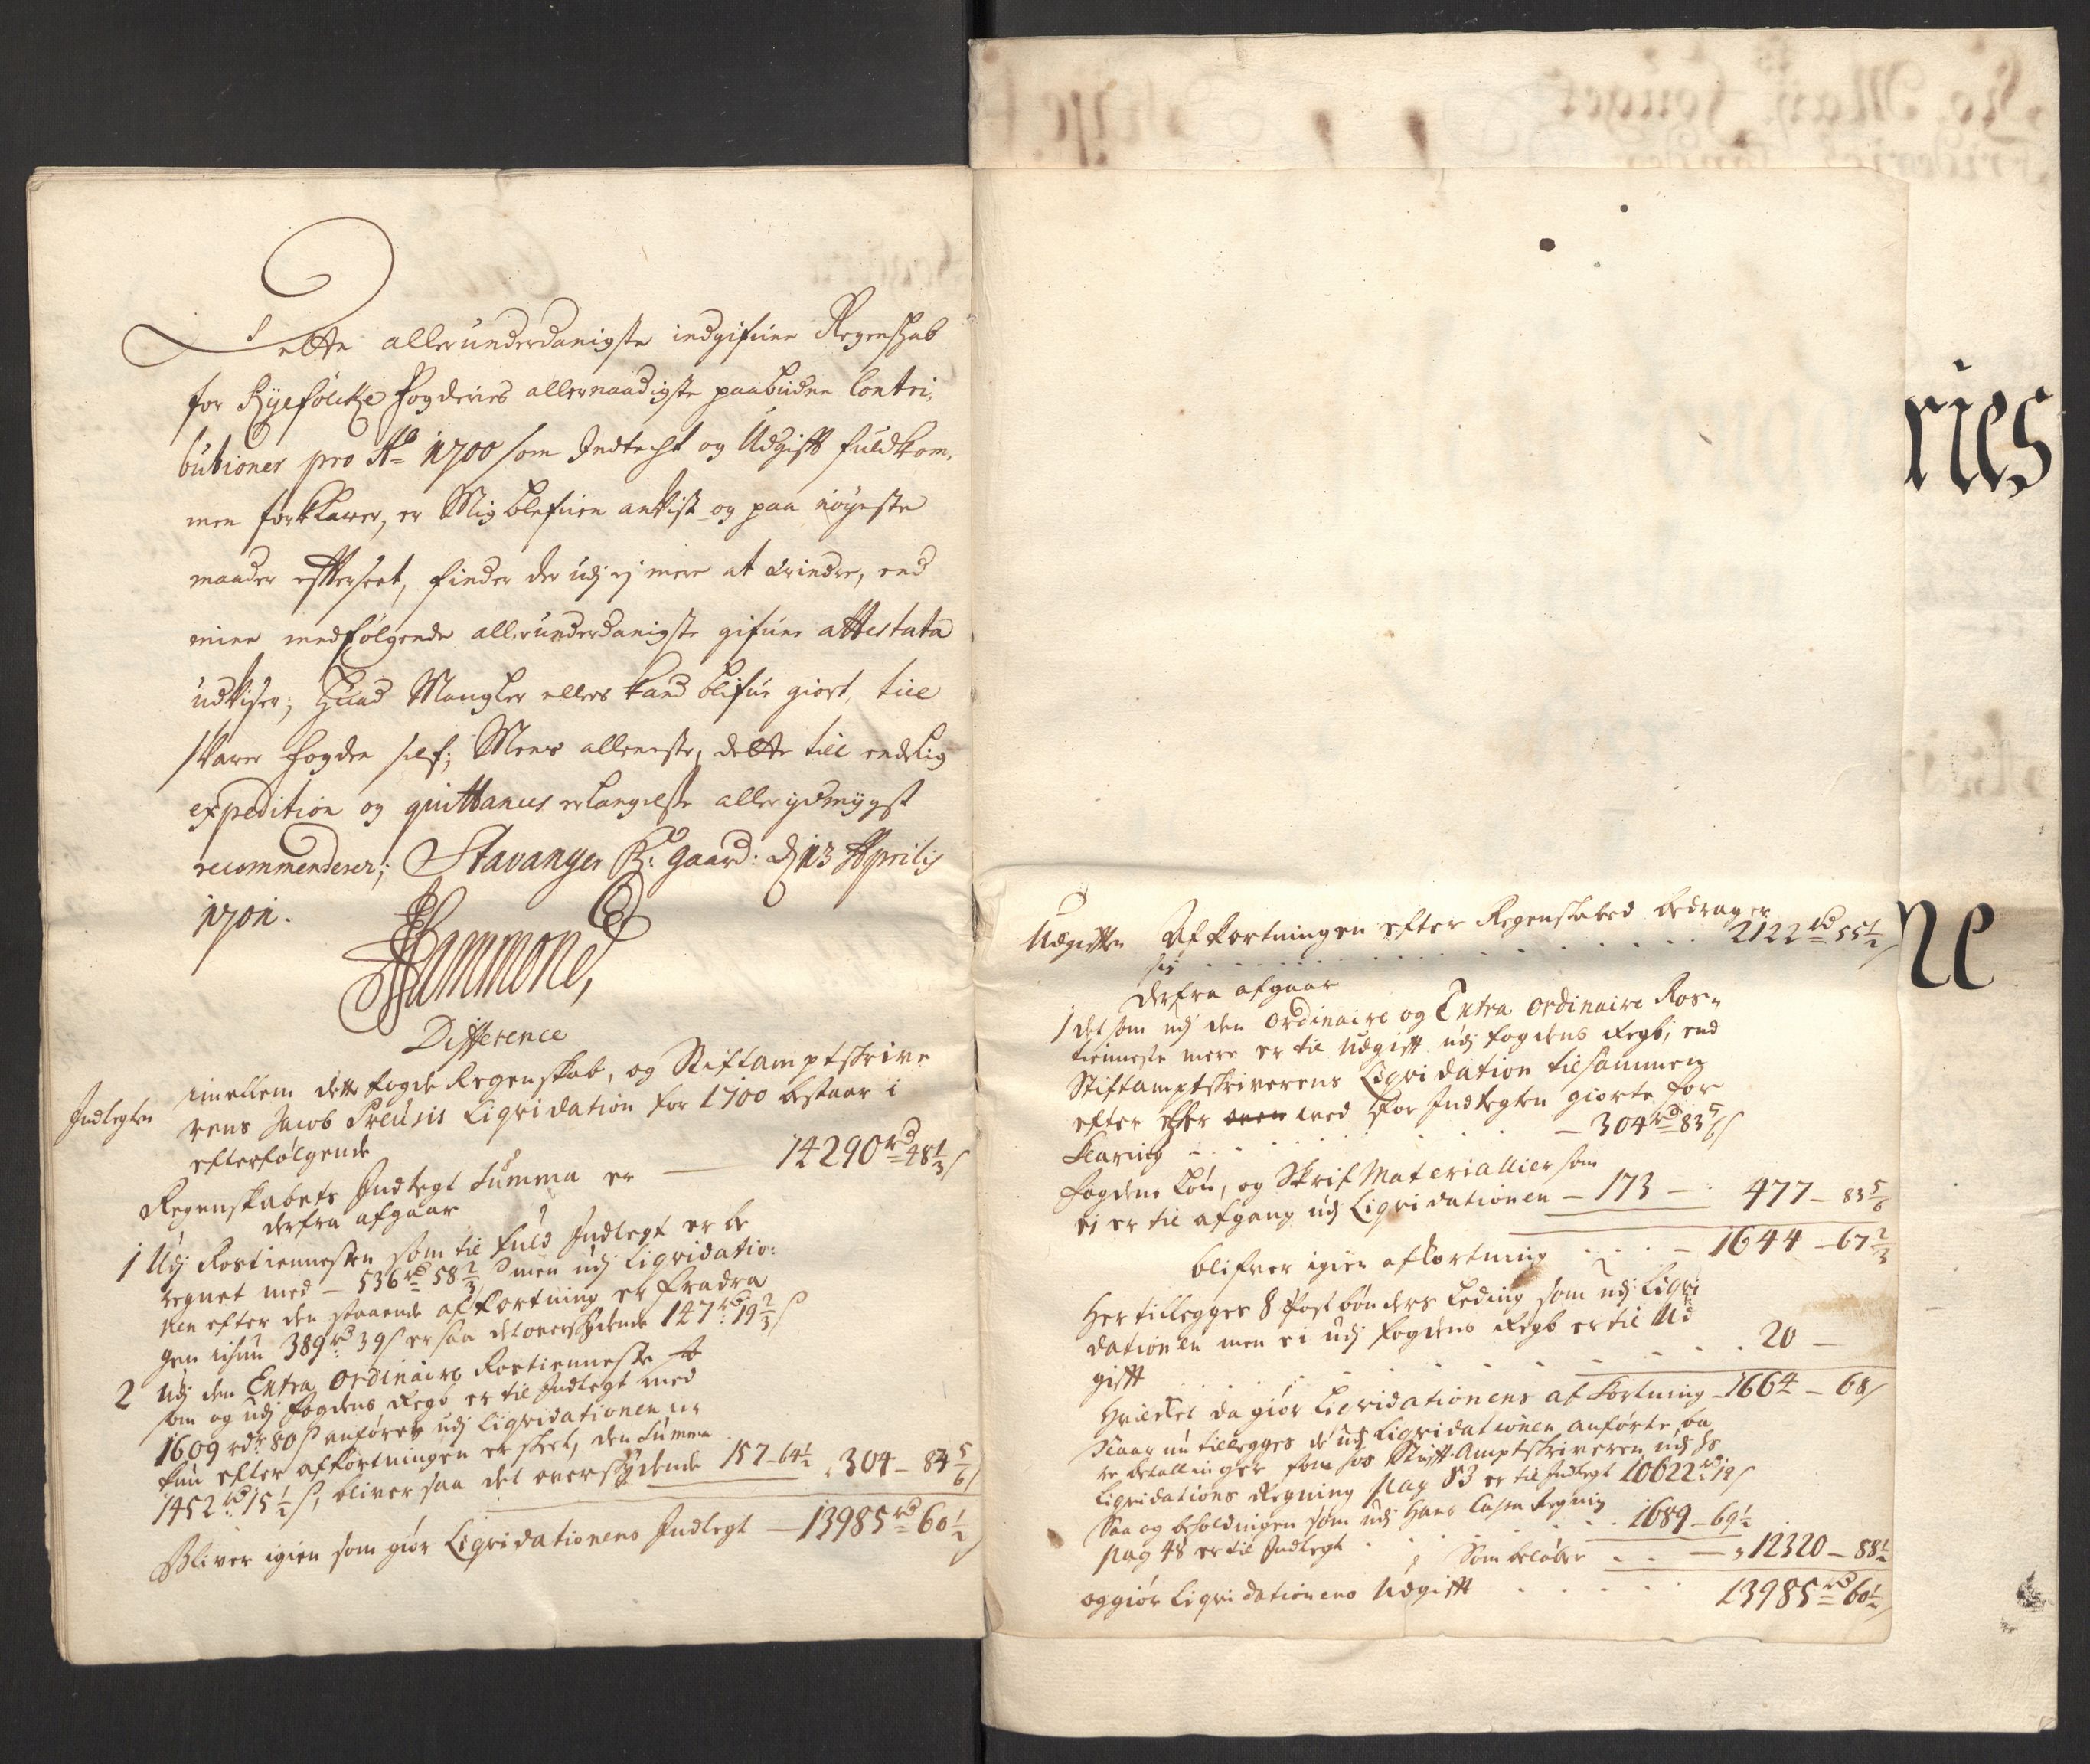 Dette allerunderdanigste indgifuene Regenschab
for Ryefölcke Fogderies allernaadigste paabudne Contri,
butioner pro Ao 1700 som Indtecht og Udgifft fuldkom,
men forklarer, er Mig blefuen anvist og paa nöyeste
maader effterseet, finder der udj ej mere at erindre, end
mine medfölgende allerunderdanigste gifuene attestata
udviser; Huad Mangler ellers kand blifue giort, till
svarer Fogden self; Mens alleneste, dette till endelig
expedition og quittances erlangelse allerydmygst
recommenderer; Stavanger K: Gaard: dj 13 Aprilis
1701.
Hammond,
Difference
Indtegten
imellem dette fogde Regenskab, og Stiftamptskrive
rens Jacob Preusis Liqvidation for 1700 bestaar i
efterfölgende
Regenskabets Indtegt Summa er — 14290 rd 48 1/3 s
derfra afgaar
1 Udj Rostiennesten som til fuld Indtegt er be
regnet med — 536 rd 58 2/3 s men udj Liqvidatio:
nen efter den staaende afkortning er fradra
gen ickun 389 rd 39 s er saa det overskydende 147 rd 19 2/3 s
2 Udj den Extra Ordinaire Rostienneste
som og udj fogdens Regb er til Indtegt med
1609 rdr 80 s anföres udj Liqvidationen ic
kun efter afkortningen er skeet, den Summa
1452 rd 15 1/2 s, bliver saa det overskydende 157 - 64 1/2 , 304 - 84 5/6 s
Bliver igien som giör Liqvidationens Indtegt — 13985 rd 60 1/2 s
Udgiften Afkortningen efter Regenskabed bedrager
sig . . . . . 2122 rd 55 1/2 s
derfra afgaar
1 det som udj den Ordinaire og Extra Ordinaire Ros-
tienneste mere er til Udgift udj fogdens Regb, end
Stiftamptskriverens Liqvidation tilsammen
efter her ved for Indtegten giorte for
klaring . . . — 304 rd 83 5/6 s
fogdens Lön, og Skrif Materiallier som
ej er til afgang udj Liqvidationen — 173 — : 477 - 83 5/6
blifver igien afkortning . . . — 1644 — 67 2/3
Her tillegges 8 Postbönders Leding som udj Liqvi
dationen men ei udj fogdens Regb er til Ud
gift . . . . . 20 —
Hvilcket da giör Liqvidationens afkortning — 1664 — 68 s
Naar nu tillegges de udj Liqvidationen anförte, ba
re betallinger som hos Stifft-Amptskriveren udj hs
Liqvidations Regning pag 83 er til Indtegt 10622 rd 19 s
Saa og beholdningen som udj Hans Cassa Regning
pag 48 er til Indtegt . . . 1689 — 69 1/2
Som belöber . . — , 12320 — 88 1/2
og giör Liqvidationens Udgifft . . . . . 13985 rd 60 1/2 s
ries
ne